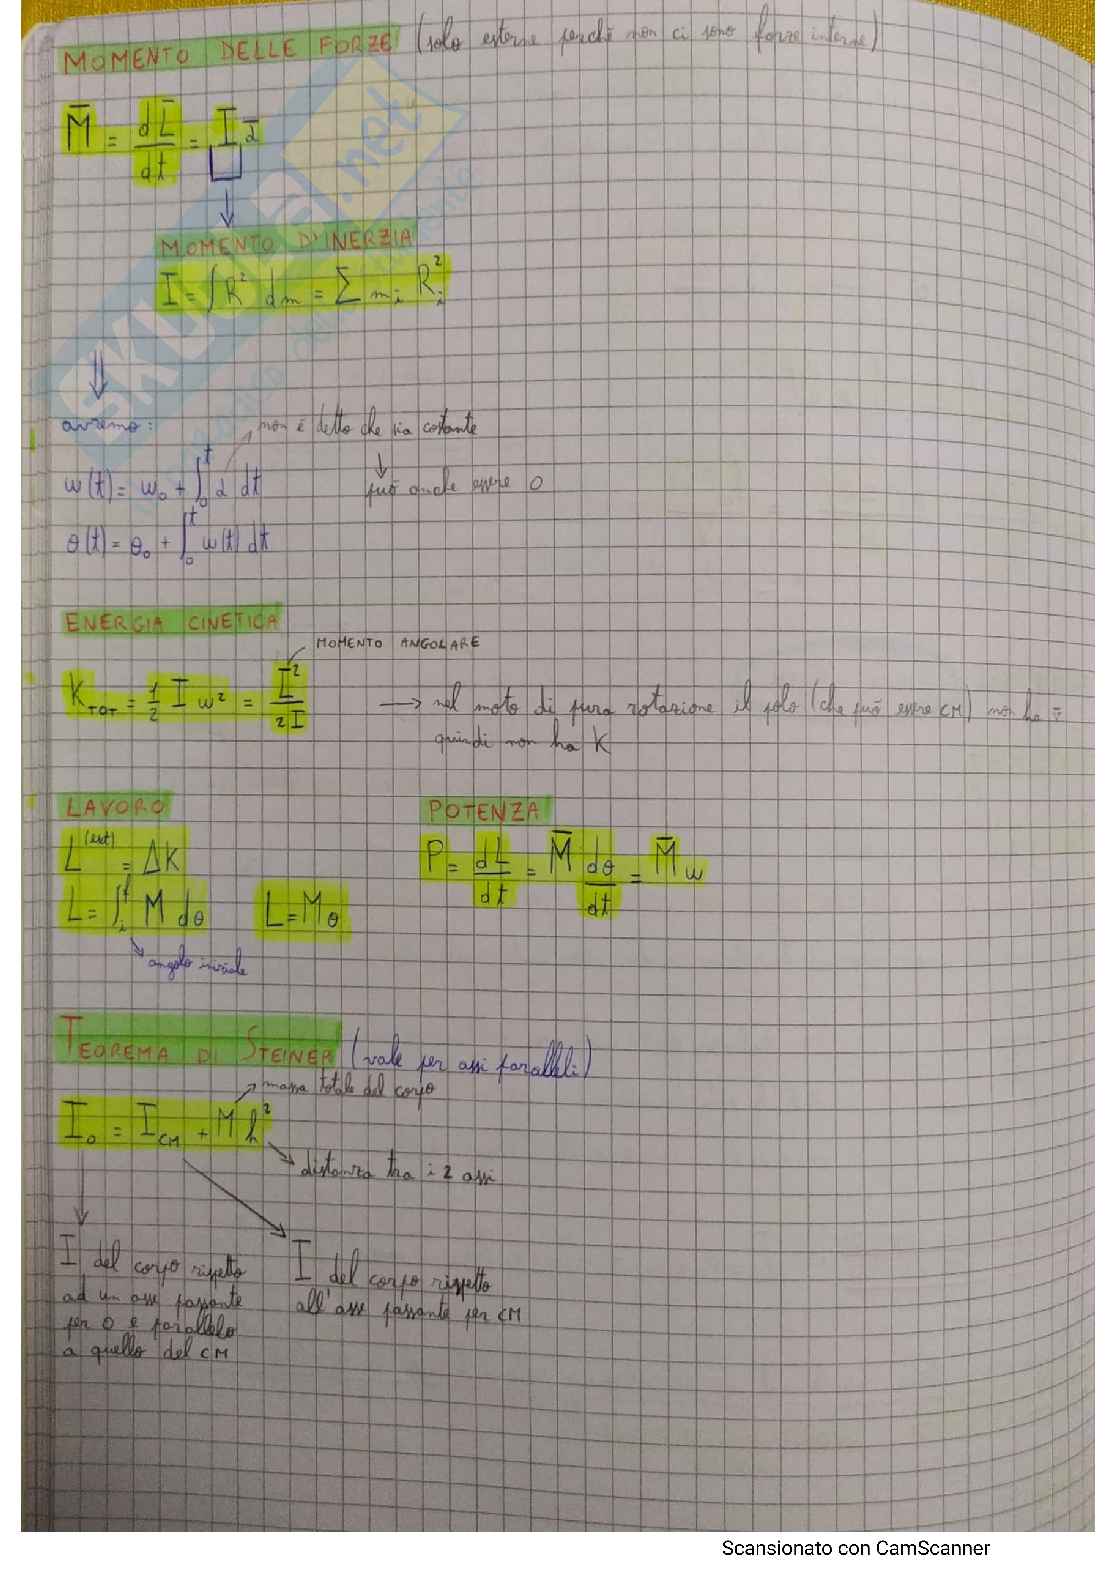 MOMENTO DELLE FORZE (solo esterne perché non ci sono forze interne)
M̄ = dL̄/dt = I ᾱ
MOMENTO D'INERZIA
I = ∫ R² dm = Σ mᵢ Rᵢ²
avremo: non è detto che sia costante
w(t) = w₀ + ∫₀ᵗ α dt può anche essere 0
θ(t) = θ₀ + ∫₀ᵗ w(t) dt
ENERGIA CINETICA
MOMENTO ANGOLARE
K_TOT = 1/2 I w² = L²/2I → nel moto di pura rotazione il polo (che può essere CM) non ha v̄
quindi non ha K
LAVORO POTENZA
L^(ext) = ΔK P = dL/dt = M̄ dθ/dt = M̄ w
L = ∫ᵢᶠ M dθ L = Mθ
angolo iniziale
TEOREMA DI STEINER (vale per assi paralleli)
massa totale del corpo
I₀ = I_CM + M h²
distanza tra i 2 assi
I del corpo rispetto
ad un asse passante
per O e parallelo
a quello del CM
I del corpo rispetto
all'asse passante per CM
SKUOLA.net
Scansionato con CamScanner